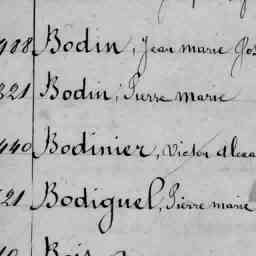 908 Bodin, Jean marie Jos
321 Bodin, Pierre marie
440 Bodinier, Victor Alexa
521 Bodiguel, Pierre marie